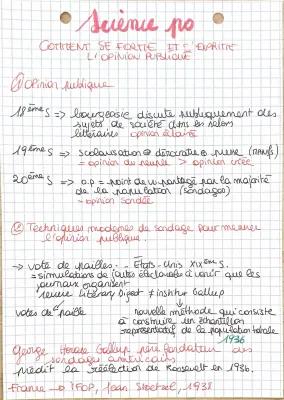 Science po
COMMENT SE FORME ET S'EXPRIME
L'OPINION PUBLIQUE
① Opinion publique
18ème S => bourgeoisie discute publiquement des
sujets de société dans les salons
littéraires opinion éclairée
19ème S => scolarisation démocratie presse (manifs)
= opinion du peuple > opinion criée
20ème S => o.p = point de vu partagé par la majorité
de la population (sondages)
- opinion sondée
② Techniques modernes de sondage pour mesurer
l'opinion publique.
→ vote de pailles - États-Unis XIXème S.
= simulations de votes électorales à venir que les
journaux organisent
revue Literary Digest ≠ institut Gallup
votes de paille nouvelle méthode qui consiste
à construire un échantillon
représentatif de la population totale
1936
George Horace Gallup père fondateur des
sondages américains
prédit la réélection de Roosevelt en 1936.
France → IFOP, Jean Stoetzel, 1938